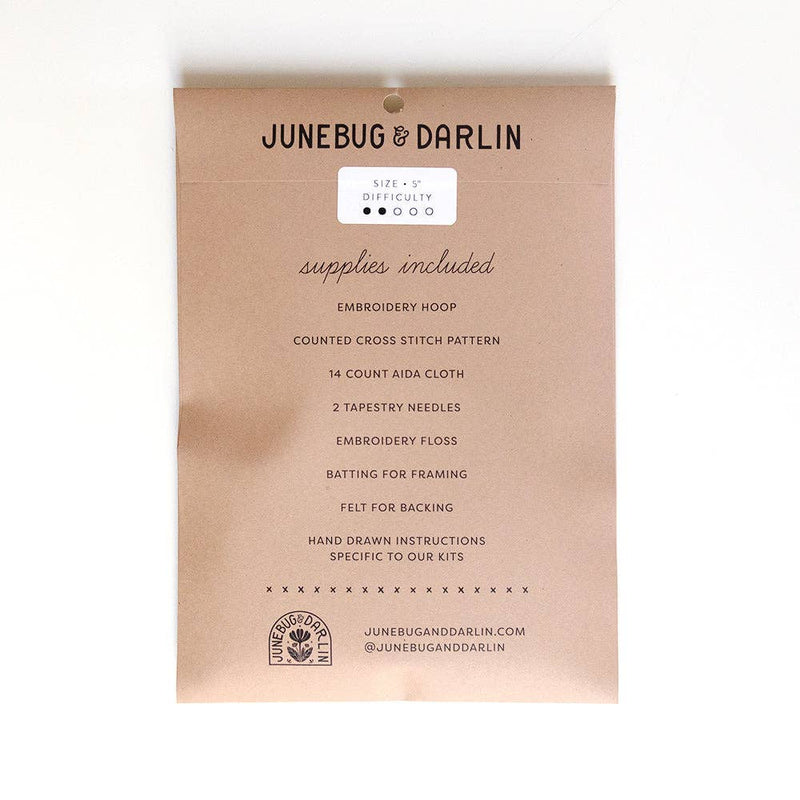 JUNEBUG & DARLIN
SIZE • 5"
DIFFICULTY
supplies included
EMBROIDERY HOOP
COUNTED CROSS STITCH PATTERN
14 COUNT AIDA CLOTH
2 TAPESTRY NEEDLES
EMBROIDERY FLOSS
BATTING FOR FRAMING
FELT FOR BACKING
HAND DRAWN INSTRUCTIONS
SPECIFIC TO OUR KITS
x x x x x x x x x x x x x x x x x
JUNEBUG & DARLIN
JUNEBUGANDDARLIN.COM
@JUNEBUGANDDARLIN